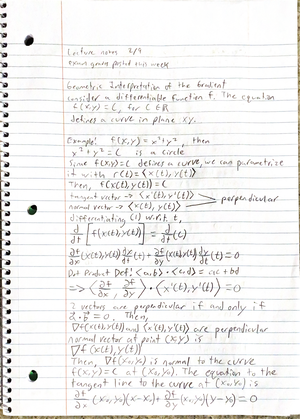 Lecture notes 2/9
exam grades posted this week
Geometric Interpretation of the Gradient
consider a differentiable function f. The equation
f(x,y)=C, for C∈ℝ
defines a curve in plane xy.
Example: f(x,y) = x²+y², then
x²+y²=C is a circle
Since f(x,y)=C defines a curve, we can parametrize
it with r(t)=<x(t), y(t)>
Then, f(x(t),y(t))=C
tangent vector → <x'(t), y'(t)>
normal vector → <x(t), y(t)> perpendicular
differentiating (1) w.r.t. t,
d/dt [f(x(t),y(t))] = d/dt (C)
∂f/∂x (x(t),y(t)) dx/dt (t) + ∂f/∂y (x(t),y(t)) dy/dt (t) = 0
Dot Product Def: <a,b>·<c,d> = ac+bd
⇒ <∂f/∂x, ∂f/∂y>·<x'(t), y'(t)> = 0
2 vectors are perpendicular if and only if
a·b=0. Then,
∇f(x(t),y(t)) and <x'(t), y'(t)> are perpendicular
normal vector at point (x,y) is
∇f(x(t),y(t))
Then, ∇f(x₀,y₀) is normal to the curve
f(x,y)=C at (x₀,y₀). The equation to the
tangent line to the curve at (x₀,y₀) is
∂f/∂x (x₀,y₀)(x-x₀) + ∂f/∂y (x₀,y₀)(y-y₀) = 0